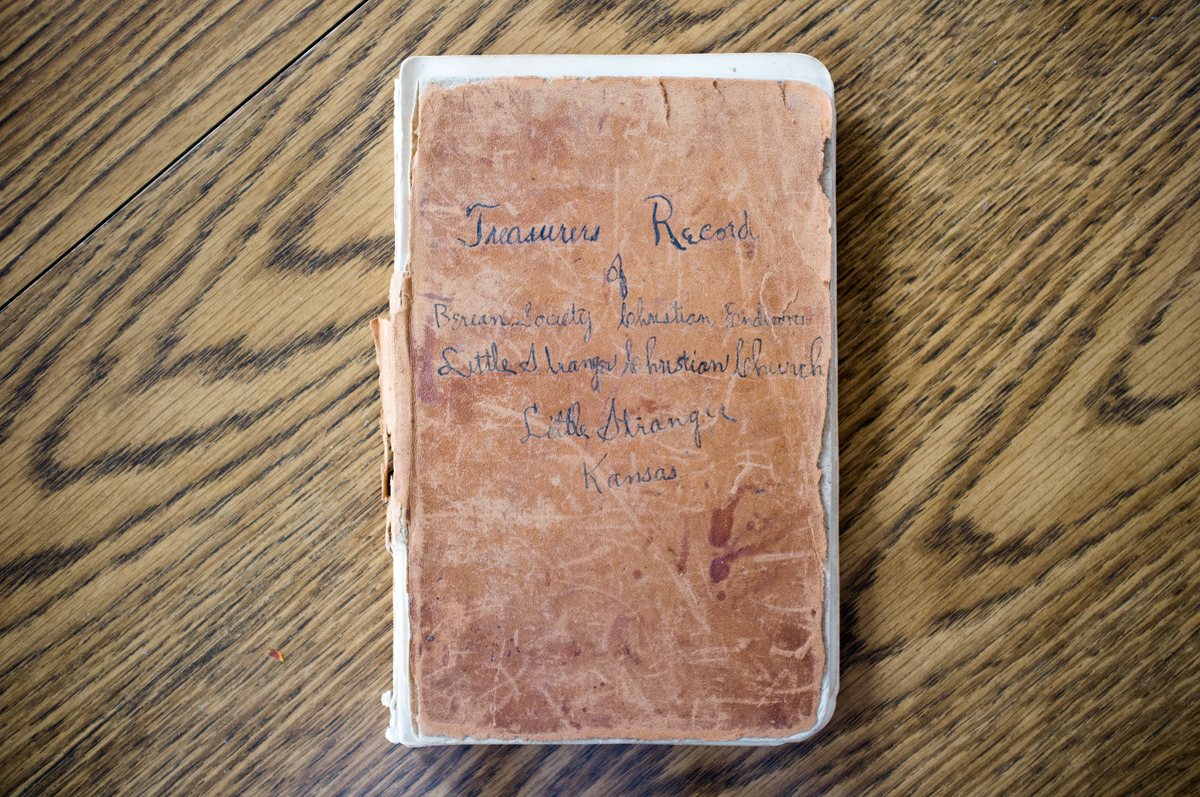 Treasurers Record
of
Berean Society Christian Endeavor
Little Stranger Christian Church
Little Stranger
Kansas